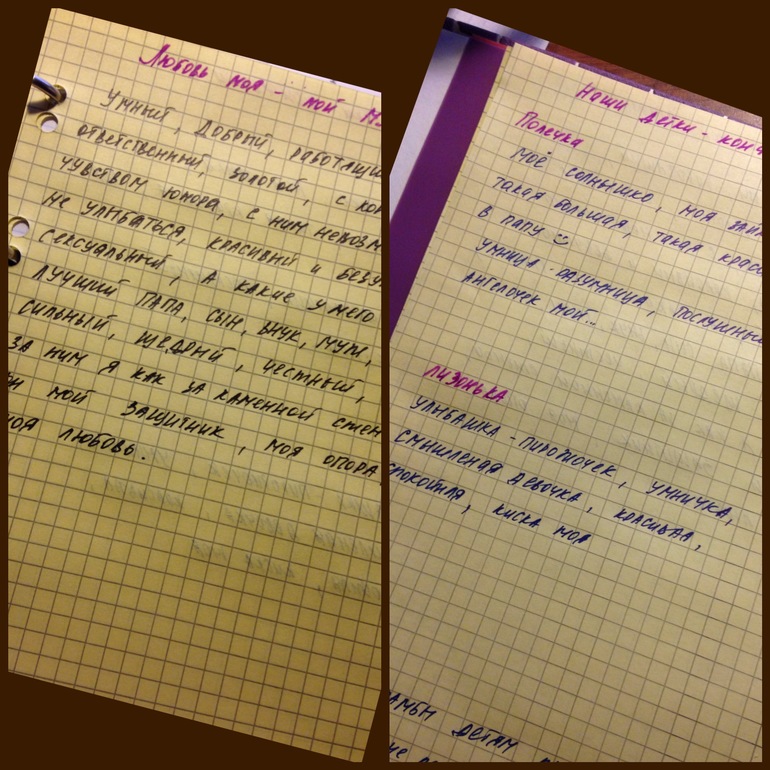 Любовь моя - мой
Умный, добрый, работящий
ответственный, золотой, с
чувством юмора, с ним невозм
не улыбаться, красивый и безу
сексуальный, а какие у него
лучший папа, сын, внук, муж,
сильный, щедрый, честный,
за ним я как за каменной стен
мой защитник, моя опора,
моя любовь.
Наши детки - кон
Полечка
Моё солнышко, моя
такая большая, такая крас
в папу
умница-разумница, послушный
ангелочек мой...
Лизонька
улыбашка-пирожочек, умничка,
смышленая девочка, красивая,
спокойная, киска моя
детям